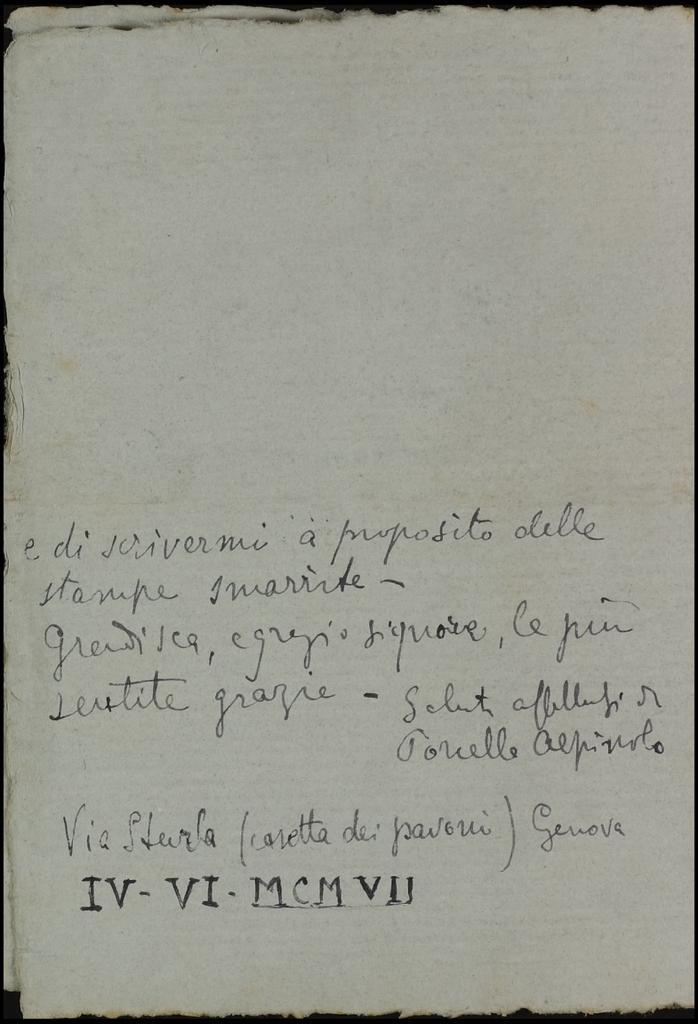 e di scrivermi à proposito delle
stampe smarrite -
Gradisca, egregio signore, le più
sentite grazie - Saluti affettuosi di
Alpinolo
Via Sturla (casetta dei pavoni) Genova
IV - VI - MCMVII